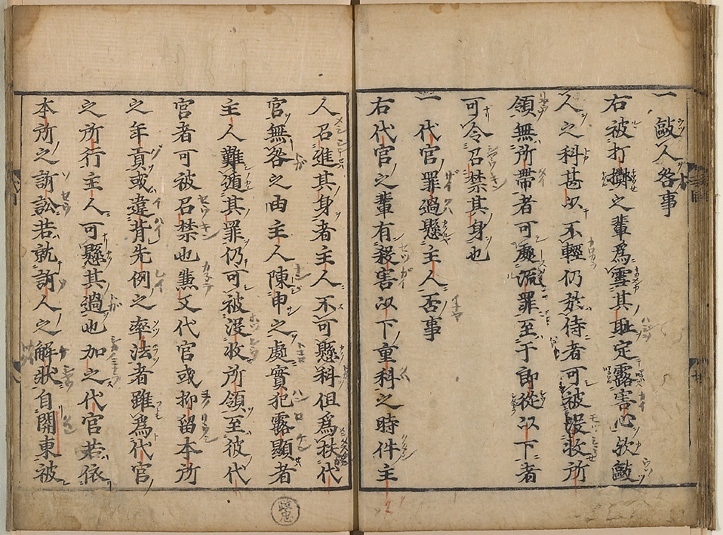 一 敲人咎事
右被打擲之輩爲雪其耻定露害心欤敲
人之科甚以不輕仍於侍者可被没收所
領無所帶者可處流罪至于郎從以下者
可令召禁其身也
一 代官罪過懸主人否事
右代官之輩有殺害以下重科之時件主
人召進其身者主人不可懸科但爲扶代
官無咎之由主人陳申之處實犯露顯者
主人難遁其罪仍可被没收所領至彼代
官者可被召禁也兼又代官或抑留本所
之年貢或違背先例之率法者雖爲代官
之所行主人可懸其過也加之代官若依
本所之訴訟若就訴人之解状自關東被